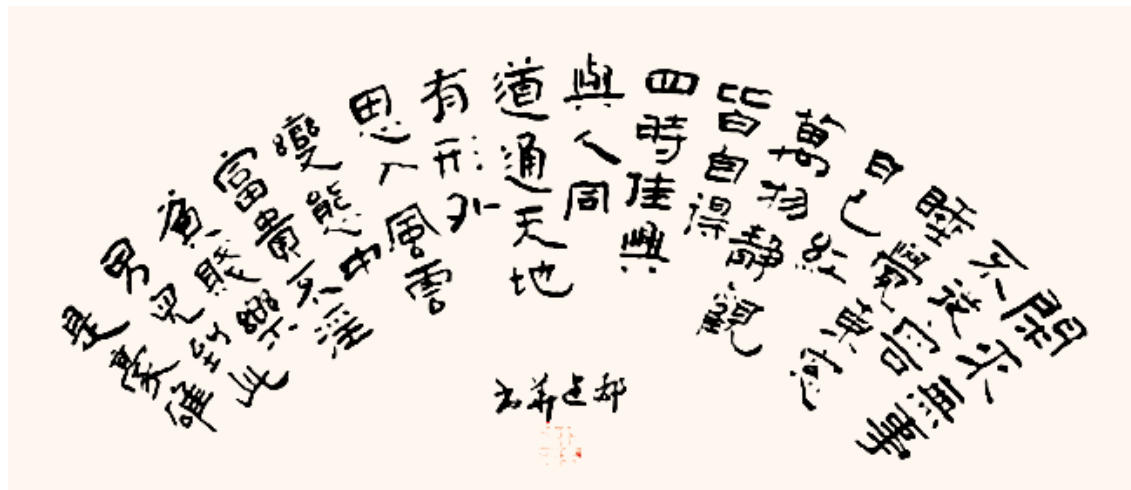 閑來無事
不從容
睡覺東窗
日已紅
萬物静觀
皆自得
四時佳興
與人同
道通天地
有形外
思入風雲
變態中
富貴不淫
貧賤樂
男兒到此
是豪雄